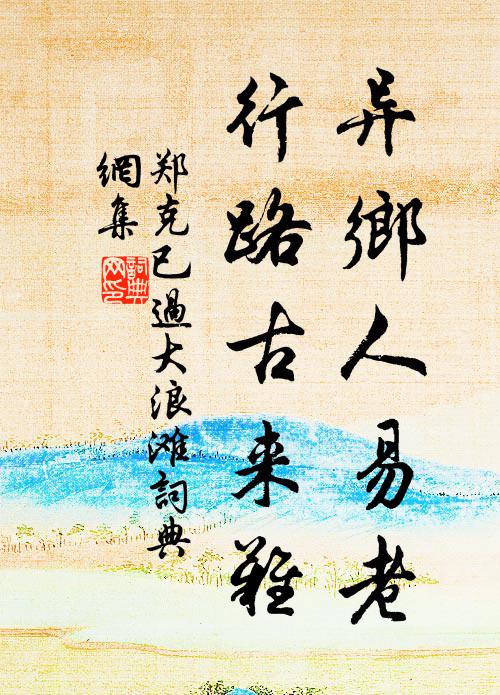 异鄉人易老
行路古来難
郑克已過大浪滩詞典
網集
詞典
网印